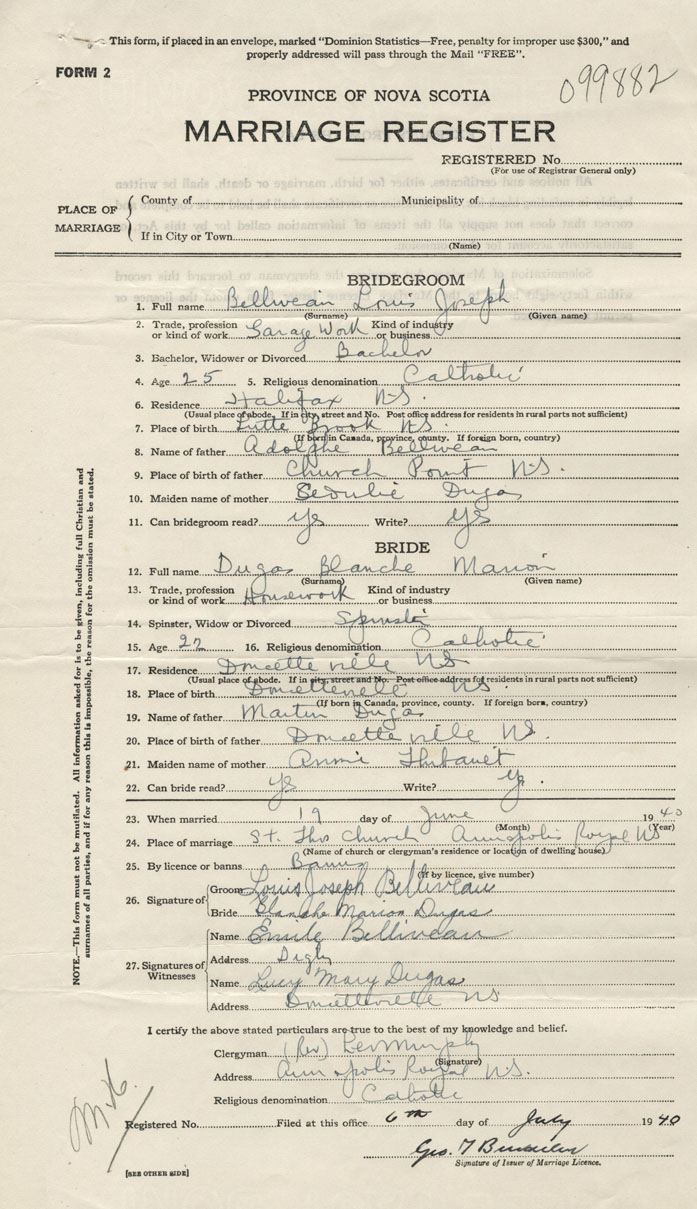 This form, if placed in an envelope, marked "Dominion Statistics—Free, penalty for improper use $300," and
properly addressed will pass through the Mail "FREE".
FORM 2
099882
PROVINCE OF NOVA SCOTIA
MARRIAGE REGISTER
REGISTERED No.
(For use of Registrar General only)
PLACE OF MARRIAGE
County of Municipality of
If in City or Town
(Name)
BRIDEGROOM
1. Full name Belliveau Louis Joseph
(Surname) (Given name)
2. Trade, profession or kind of work Garage Work Kind of industry or business
3. Bachelor, Widower or Divorced Bachelor
4. Age 25 5. Religious denomination Catholic
6. Residence Halifax N.S.
(Usual place of abode. If in city, street and No. Post office address for residents in rural parts not sufficient)
7. Place of birth Little Brook N.S.
(If born in Canada, province, county. If foreign born, country)
8. Name of father Adolphe Belliveau
9. Place of birth of father Church Point N.S.
10. Maiden name of mother Dugas
11. Can bridegroom read? yes Write? yes
BRIDE
12. Full name Dugas Blanche Marion
(Surname) (Given name)
13. Trade, profession or kind of work Housework Kind of industry or business
14. Spinster, Widow or Divorced Spinster
15. Age 22 16. Religious denomination Catholic
17. Residence Doucetteville N.S.
(Usual place of abode. If in city, street and No. Post office address for residents in rural parts not sufficient)
18. Place of birth Doucetteville N.S.
(If born in Canada, province, county. If foreign born, country)
19. Name of father Martin Dugas
20. Place of birth of father Doucetteville N.S.
21. Maiden name of mother Annie Thibault
22. Can bride read? yes Write? yes
23. When married 19 day of June 1940
(Month) (Year)
24. Place of marriage St. Thos Church Annapolis Royal N.S.
(Name of church or clergyman's residence or location of dwelling house)
25. By licence or banns Banns
(If by licence, give number)
26. Signature of Groom Louis Joseph Belliveau
Bride Blanche Marion Dugas
27. Signatures of Witnesses
Name Emile Belliveau
Address Digby
Name Lucy Mary Dugas
Address Doucetteville N.S.
I certify the above stated particulars are true to the best of my knowledge and belief.
Clergyman (Rev) Leo Murphy
(Signature)
Address Annapolis Royal N.S.
Religious denomination Catholic
Registered No. Filed at this office 6th day of July 1940
Geo. T
Signature of Issuer of Marriage Licence.
[SEE OTHER SIDE]
NOTE.—This form must not be mutilated. All information asked for is to be given, including full Christian and
surnames of all parties, and if for any reason this is impossible, the reason for the omission must be stated.